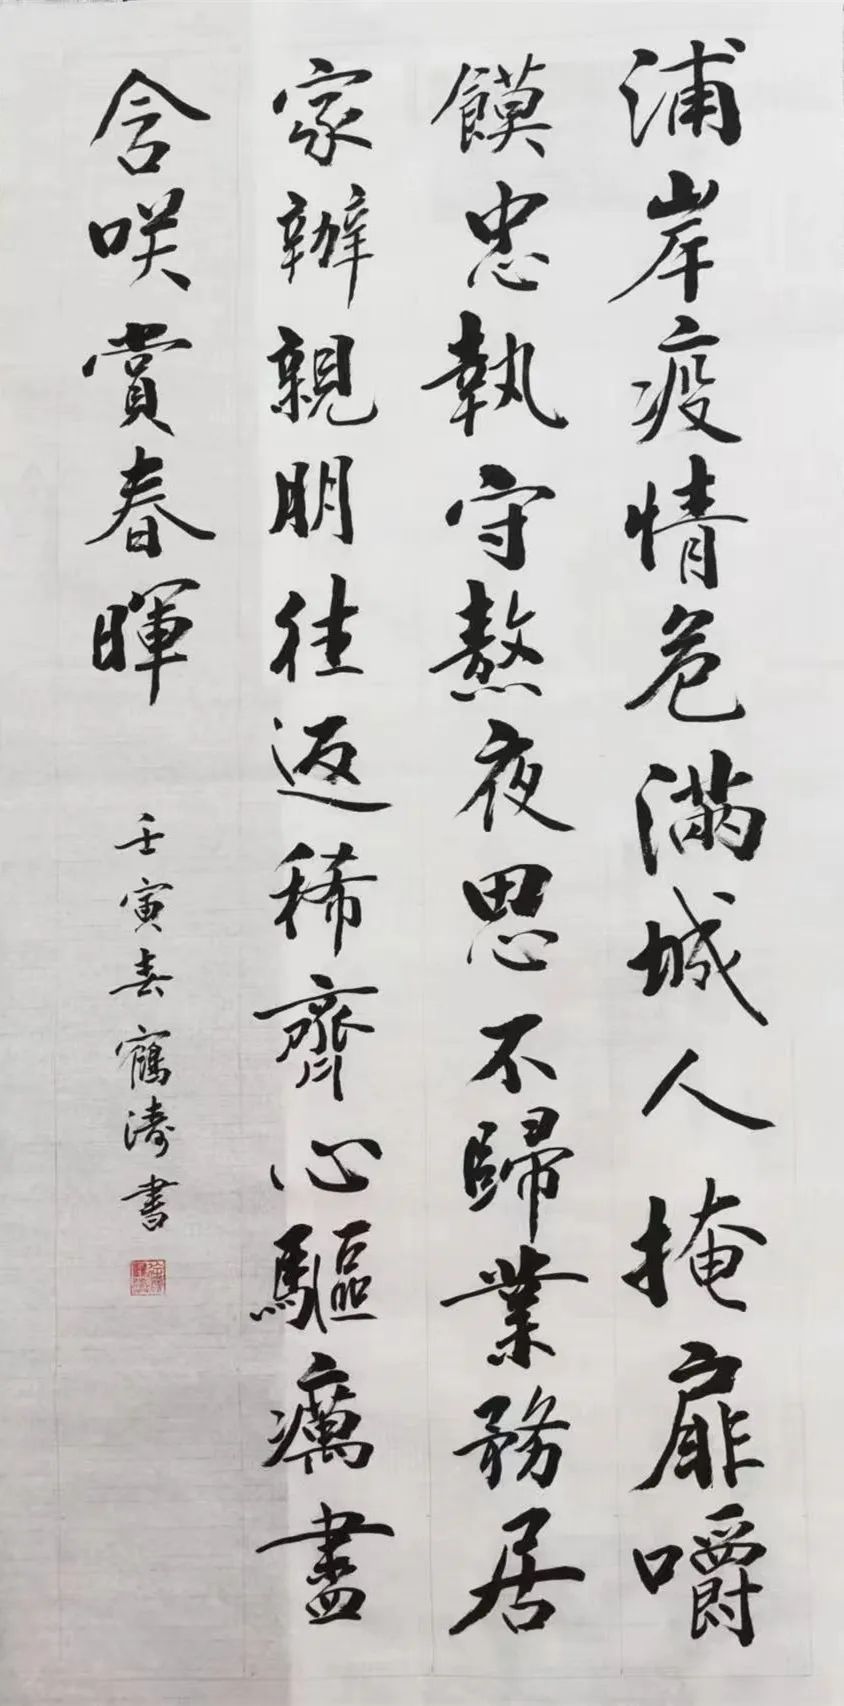 浦岸疫情危滿城人掩扉嚼
饃忠執守熬夜思不歸業務居
家辦親朋往返稀齊心驅癘盡
含咲賞春暉
壬寅春寉濤書